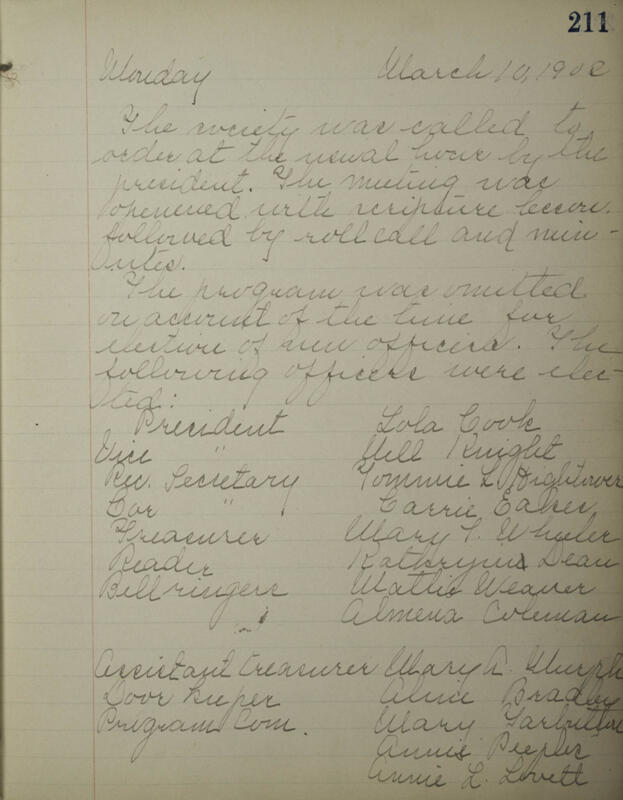 211
Monday March 10, 1902
The society was called to
order at the usual hour by the
president. The meeting was
openened with scripture lesson.
followed by roll call and min-
utes.
The program was omitted
on account of the time for
election of new officers. The
following officers were elec-
ted:
President Lola Cook
Vice " Nell Knight
Rec. Secretary Tommie L. Hightower
Cor " Carrie Eakes
Treasurer Mary T. Wheeler
Reader Kathryne Dean
Bellringers Mattie Weaver
Almena Coleman
Assistant treasurer Mary A. Murph
Door Keeper Aline Bradley
Program Com. Mary
Annie Peeples
Annie L. Lovett